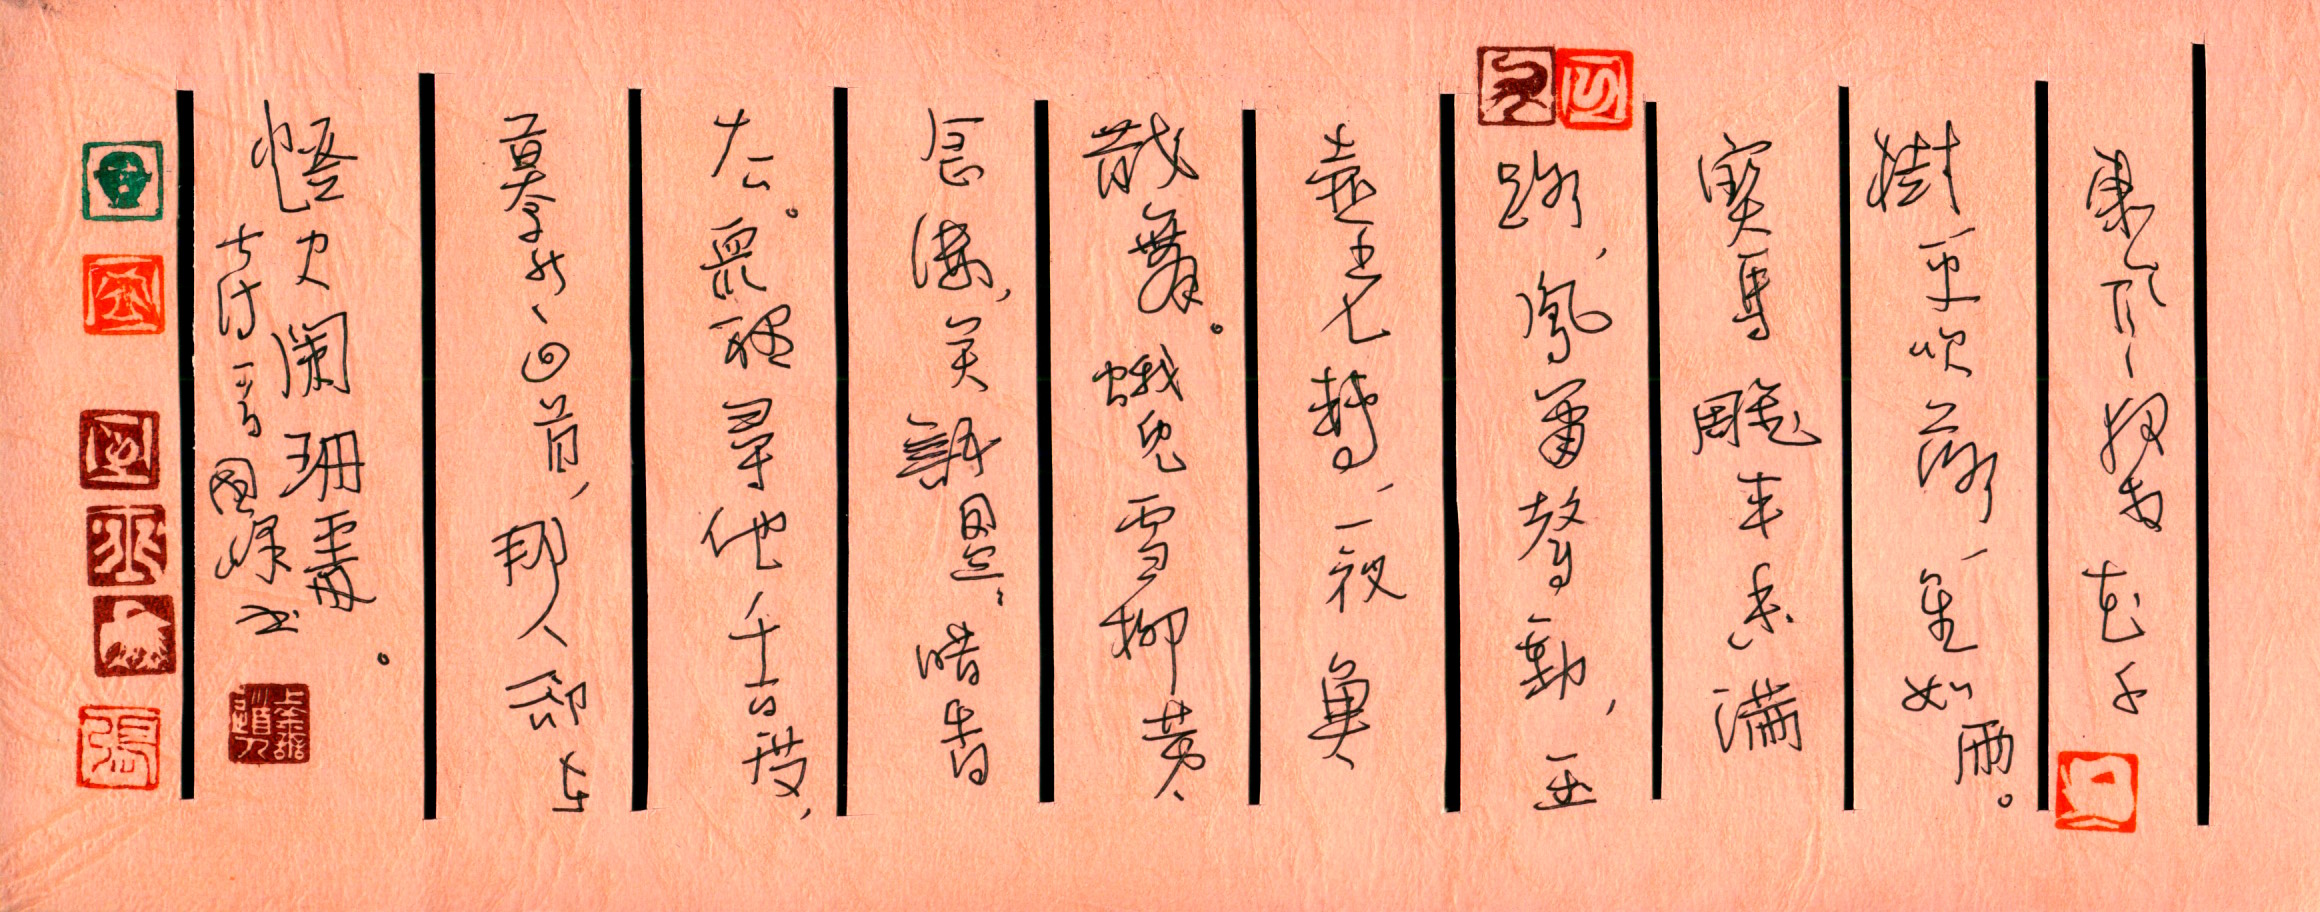 東風夜放花千
樹、更吹落、星如雨。
寶馬雕車香滿
路,鳳簫聲動,玉
壺光轉,一夜魚
龍舞。蛾兒雪柳黃
金縷,笑語盈盈暗香
去。眾裡尋他千百度,
驀然回首,那人卻在
燈火闌珊處。
古詩一首國峰書